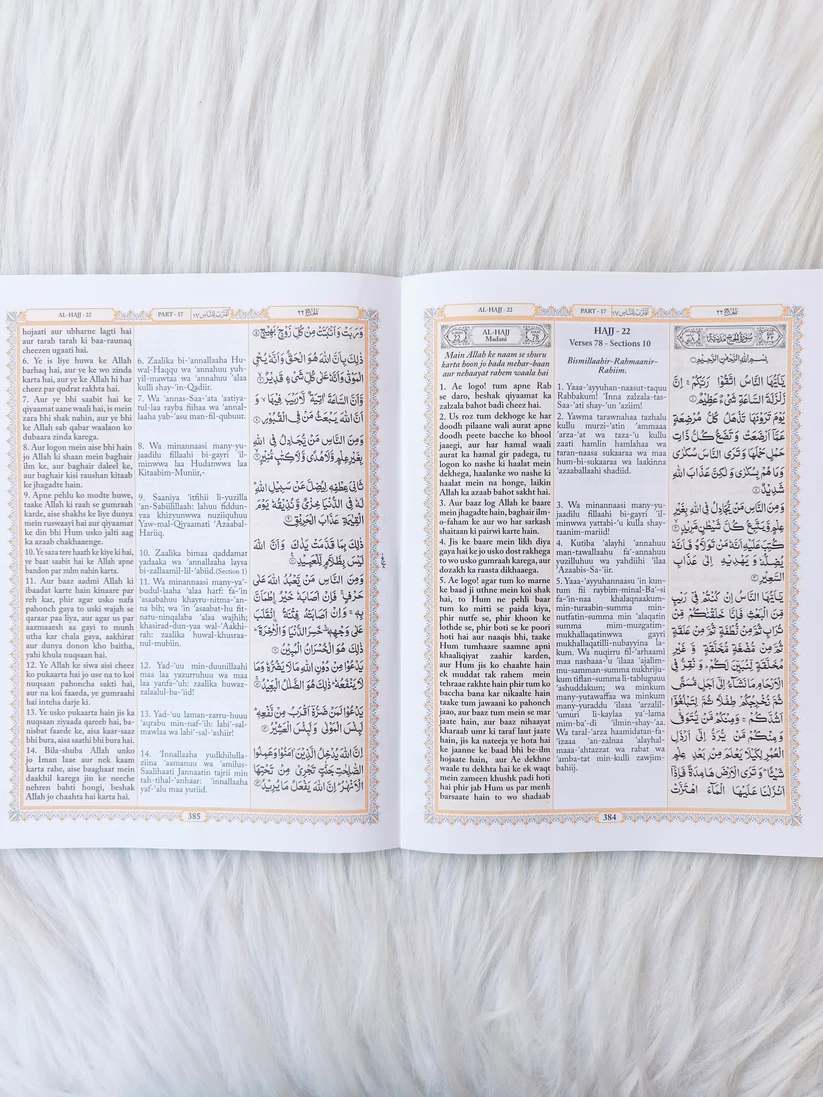 AL-HAJJ - 22
PART - 17
اقترب للناس ١٧
الحج ٢٢
AL-HAJJ
Madani
78
Main Allah ke naam se shuru
karta boon jo bada mehar-baan
aur nehaayat rahem waala hai
1. Ae logo! tum apne Rab
se daro, beshak qiyaamat ka
zalzala bahot badi cheez hai.
2. Us roz tum dekhoge ke har
doodh pilaane wali aurat apne
doodh peete bacche ko bhool
jaaegi, aur har hamal waali
aurat ka hamal gir padega, tu
logon ko nashe ki haalat mein
dekhega, haalanke wo nashe ki
haalat mein na honge, laikin
Allah ka azaab bahot sakht hai.
3. Aur baaz log Allah ke baare
mein jhagadte hain, baghair ilm-
o-faham ke aur wo har sarkash
shaitaan ki pairwi karte hain.
4. Jis ke baare mein likh diya
gaya hai ke jo usko dost rakhega
to wo usko gumraah karega, aur
dozakh ka raasta dikhaaega.
5. Ae logo! agar tum ko marne
ke baad ji uthne mein koi shak
hai, to Hum ne pehli baar
tum ko mitti se paida kiya,
phir nutfe se, phir khoon ke
lothde se, phir boti se ke poori
hoti hai aur naaqis bhi, taake
Hum tumhaare saamne apni
khaaliqiyat zaahir karden,
aur Hum jis ko chaahte hain
ek muddat tak rahem mein
tehraae rakhte hain phir tum ko
baccha bana kar nikaalte hain
taake tum jawaani ko pahonch
jaao, aur baaz tum mein se mar
jaate hain, aur baaz nihaayat
kharaab umr ki taraf laut jaate
hain, jis ka nateeja ye hota hai
ke jaanne ke baad bhi be-ilm
hojaate hain, aur Ae dekhne
waale tu dekhta hai ke ek waqt
mein zameen khushk padi hoti
hai phir jab Hum us par menh
barsaate hain to wo shadaab
HAJJ - 22
Verses 78 - Sections 10
Bismillaahir-Rahmaanir-
Rahiim.
1. Yaaa-'ayyuhan-naasut-taquu
Rabbakum! 'Inna zalzala-tas-
Saa-'ati shay-'un 'aziim!
2. Yawma tarawnahaa tazhalu
kullu murzi-'atin 'ammaaa
'arza-'at wa taza-'u kullu
zaati hamlin hamlahaa wa
taran-naasa sukaaraa wa maa
hum-bi-sukaaraa wa laakinna
azaaballaahi shadiid.
3. Wa minannaasi many-yu-
jaadilu fillaahi bi-gayri 'il-
minwwa yattabi-'u kulla shay-
taanim-mariid!
4. Kutiba 'alayhi 'annahuu
man-tawallaahu fa'-annahuu
yuzilluhuu wa yahdiihi 'ilaa
'Azaabis-Sa-'iir.
5. Yaaa-'ayyuhannaasu 'in kun-
tum fii raybim-minal-Ba'-si
fa-'in-naa khalaqnaakum-
min-turaabin-summa min-
nutfatin-summa min 'alaqatin
summa mim-muzgatim-
mukhallaqatinwwa gayri
mukhallaqatilli-nubayyina la-
kum. Wa nuqirru fil-'arhaami
maa nashaaa-'u 'ilaaa 'ajalim-
mu-samman-summa nukhriju-
kum tiflan-summa li-tabluguuu
'ashuddakum; wa minkum
many-yutawaffaa wa minkum
many-yuraddu 'ilaaa 'arzalil-
'umuri li-kaylaa ya'-lama
mim-ba'-di 'ilmin-shay-'aa.
Wa taral-'arza haamidatan-fa-
'izaaa 'an-zalnaa 'alayhal-
maaa-'ahtazzat wa rabat wa
'amba-tat min-kulli zawjim-
bahiij.
سورة الحج مدنية
بِسْمِ اللهِ الرَّحْمٰنِ الرَّحِيْمِ
يٰٓاَيُّهَا النَّاسُ اتَّقُوْا رَبَّكُمْ ۚ اِنَّ
زَلْزَلَةَ السَّاعَةِ شَىْءٌ عَظِيْمٌ ①
يَوْمَ تَرَوْنَهَا تَذْهَلُ كُلُّ مُرْضِعَةٍ
عَمَّآ اَرْضَعَتْ وَتَضَعُ كُلُّ ذَاتِ
حَمْلٍ حَمْلَهَا وَتَرَى النَّاسَ سُكٰرٰى
وَمَا هُمْ بِسُكٰرٰى وَلٰكِنَّ عَذَابَ اللهِ
شَدِيْدٌ ②
وَمِنَ النَّاسِ مَنْ يُّجَادِلُ فِى اللهِ بِغَيْرِ
عِلْمٍ وَّيَتَّبِعُ كُلَّ شَيْطٰنٍ مَّرِيْدٍ ③
كُتِبَ عَلَيْهِ اَنَّهٗ مَنْ تَوَلَّاهُ فَاَنَّهٗ
يُضِلُّهٗ وَيَهْدِيْهِ اِلٰى عَذَابِ
السَّعِيْرِ ④
يٰٓاَيُّهَا النَّاسُ اِنْ كُنْتُمْ فِىْ رَيْبٍ
مِّنَ الْبَعْثِ فَاِنَّا خَلَقْنٰكُمْ مِّنْ
تُرَابٍ ثُمَّ مِنْ نُّطْفَةٍ ثُمَّ مِنْ عَلَقَةٍ
ثُمَّ مِنْ مُّضْغَةٍ مُّخَلَّقَةٍ وَّغَيْرِ
مُخَلَّقَةٍ لِّنُبَيِّنَ لَكُمْ ؕ وَنُقِرُّ فِى
الْاَرْحَامِ مَا نَشَآءُ اِلٰٓى اَجَلٍ مُّسَمًّى
ثُمَّ نُخْرِجُكُمْ طِفْلًا ثُمَّ لِتَبْلُغُوْٓا
اَشُدَّكُمْ ۚ وَمِنْكُمْ مَّنْ يُّتَوَفّٰى
وَمِنْكُمْ مَّنْ يُّرَدُّ اِلٰٓى اَرْذَلِ
الْعُمُرِ لِكَيْلَا يَعْلَمَ مِنْۢ بَعْدِ عِلْمٍ
شَيْئًا ؕ وَتَرَى الْاَرْضَ هَامِدَةً فَاِذَآ
اَنْزَلْنَا عَلَيْهَا الْمَآءَ اهْتَزَّتْ
384
AL-HAJJ - 22
PART - 17
اقترب للناس ١٧
الحج ٢٢
hojaati aur ubharne lagti hai
aur tarah tarah ki baa-raunaq
cheezen ugaati hai.
6. Ye is liye huwa ke Allah
barhaq hai, aur ye ke wo zinda
karta hai, aur ye ke Allah hi har
cheez par qudrat rakhta hai.
7. Aur ye bhi saabit hai ke
qiyaamat aane waali hai, is mein
zara bhi shak nahin, aur ye bhi
ke Allah sab qabar waalaon ko
dubaara zinda karega.
8. Aur logon mein aise bhi hain
jo Allah ki shaan mein baghair
ilm ke, aur baghair daleel ke,
aur baghair kisi raushan kitaab
ke jhagadte hain.
9. Apne pehlu ko modte huwe,
taake Allah ki raah se gumraah
karde, aise shakhs ke liye dunya
mein ruswaayi hai aur qiyaamat
ke din bhi Hum usko jalti aag
ka azaab chakhaaenge.
10. Ye saza tere haath ke kiye ki hai,
ye baat saabit hai ke Allah apne
bandon par zulm nahin karta.
11. Aur baaz aadmi Allah ki
ibaadat karte hain kinaare par
reh kar, phir agar usko nafa
pahonch gaya to uski wajah se
qaraar paa liya, aur agar us par
aazmaaesh aa gayi to munh
utha kar chala gaya, aakhirat
aur dunya donon kho baitha,
yahi khula nuqsaan hai.
12. Ye Allah ke siwa aisi cheez
ko pukaarta hai jo use na to koi
nuqsaan pahoncha sakti hai,
aur na koi faaeda, ye gumraahi
hai inteha darje ki.
13. Ye usko pukaarta hain jis ka
nuqsaan ziyaada qareeb hai, ba-
nisbat faaede ke, aisa kaar-saaz
bhi bura, aisa saathi bhi bura hai.
14. Bila-shuba Allah unko
jo Iman laae aur nek kaam
karta rahe, aise baaghaat mein
daakhil karega jin ke neeche
nehren bahti hongi, beshak
Allah jo chaahta hai karta hai.
6. Zaalika bi-'annallaaha Hu-
wal-Haqqu wa 'annahuu yuh-
yil-mawtaa wa 'annahuu 'alaa
kulli shay-'in-Qadiir.
7. Wa 'annas-Saa-'ata 'aatiya-
tul-laa rayba fiihaa wa 'annal-
laaha yab-'asu man-fil-qubuur.
8. Wa minannaasi many-yu-
jaadilu fillaahi bi-gayri 'il-
minwwa laa Hudanwwa laa
Kitaabim-Muniir,-
9. Saaniya 'itfihii li-yuzilla
'an-Sabiilillaah: lahuu fiddun-
yaa khizyunwwa nuziiquhuu
Yaw-mal-Qiyaamati 'Azaabal-
Hariiq.
10. Zaalika bimaa qaddamat
yadaaka wa 'annallaaha laysa
bi-zallaamil-lil-'abiid.(Section 1)
11. Wa minannaasi many-ya'-
budul-laaha 'alaa harf: fa-'in
'asaabahuu khayru-nitma-'an-
na bih; wa 'in 'asaabat-hu fit-
natu-ninqalaba 'alaa wajhih;
khasirad-dun-yaa wal-'Aakhi-
rah: zaalika huwal-khusraa-
nul-mubiin.
12. Yad-'uu min-duunillaahi
maa laa yazurruhuu wa maa
laa yanfa-'uh: zaalika huwaz-
zalaalul-ba-'iid!
13. Yad-'uu laman-zarru-huuu
'aqrabu min-naf-'ih: labi'-sal-
mawlaa wa labi'-sal-'ashiir!
14. 'Innallaaha yudkhilulla-
ziina 'aamanuu wa 'amilus-
Saalihaati Jannaatin tajrii min
tah-tihal-'anhaar: 'innallaaha
yaf-'alu maa yuriid.
وَرَبَتْ وَاَنْۢبَتَتْ مِنْ كُلِّ زَوْجٍۢ بَهِيْجٍ ⑤
ذٰلِكَ بِاَنَّ اللهَ هُوَ الْحَقُّ وَاَنَّهٗ يُحْىِ
الْمَوْتٰى وَاَنَّهٗ عَلٰى كُلِّ شَىْءٍ قَدِيْرٌ ⑥
وَّاَنَّ السَّاعَةَ اٰتِيَةٌ لَّا رَيْبَ فِيْهَا ۙ وَ
اَنَّ اللهَ يَبْعَثُ مَنْ فِى الْقُبُوْرِ ⑦
وَمِنَ النَّاسِ مَنْ يُّجَادِلُ فِى اللهِ
بِغَيْرِ عِلْمٍ وَّلَا هُدًى وَّلَا كِتٰبٍ مُّنِيْرٍ ⑧
ثَانِىَ عِطْفِهٖ لِيُضِلَّ عَنْ سَبِيْلِ اللهِ ؕ
لَهٗ فِى الدُّنْيَا خِزْىٌ وَّنُذِيْقُهٗ يَوْمَ
الْقِيٰمَةِ عَذَابَ الْحَرِيْقِ ⑨
ذٰلِكَ بِمَا قَدَّمَتْ يَدٰكَ وَاَنَّ اللهَ
لَيْسَ بِظَلَّامٍ لِّلْعَبِيْدِ ⑩
وَمِنَ النَّاسِ مَنْ يَّعْبُدُ اللهَ عَلٰى
حَرْفٍ ۚ فَاِنْ اَصَابَهٗ خَيْرُ ۨاطْمَاَنَّ
بِهٖ ۚ وَاِنْ اَصَابَتْهُ فِتْنَةُ ۨانْقَلَبَ
عَلٰى وَجْهِهٖ ۚ خَسِرَ الدُّنْيَا وَالْاٰخِرَةَ ؕ
ذٰلِكَ هُوَ الْخُسْرَانُ الْمُبِيْنُ ⑪
يَدْعُوْا مِنْ دُوْنِ اللهِ مَا لَا يَضُرُّهٗ وَمَا
لَا يَنْفَعُهٗ ؕ ذٰلِكَ هُوَ الضَّلٰلُ الْبَعِيْدُ ⑫
يَدْعُوْا لَمَنْ ضَرُّهٗٓ اَقْرَبُ مِنْ نَّفْعِهٖ ؕ
لَبِئْسَ الْمَوْلٰى وَلَبِئْسَ الْعَشِيْرُ ⑬
اِنَّ اللهَ يُدْخِلُ الَّذِيْنَ اٰمَنُوْا وَعَمِلُوا
الصّٰلِحٰتِ جَنّٰتٍ تَجْرِىْ مِنْ تَحْتِهَا
الْاَنْهٰرُ ؕ اِنَّ اللهَ يَفْعَلُ مَا يُرِيْدُ ⑭
385